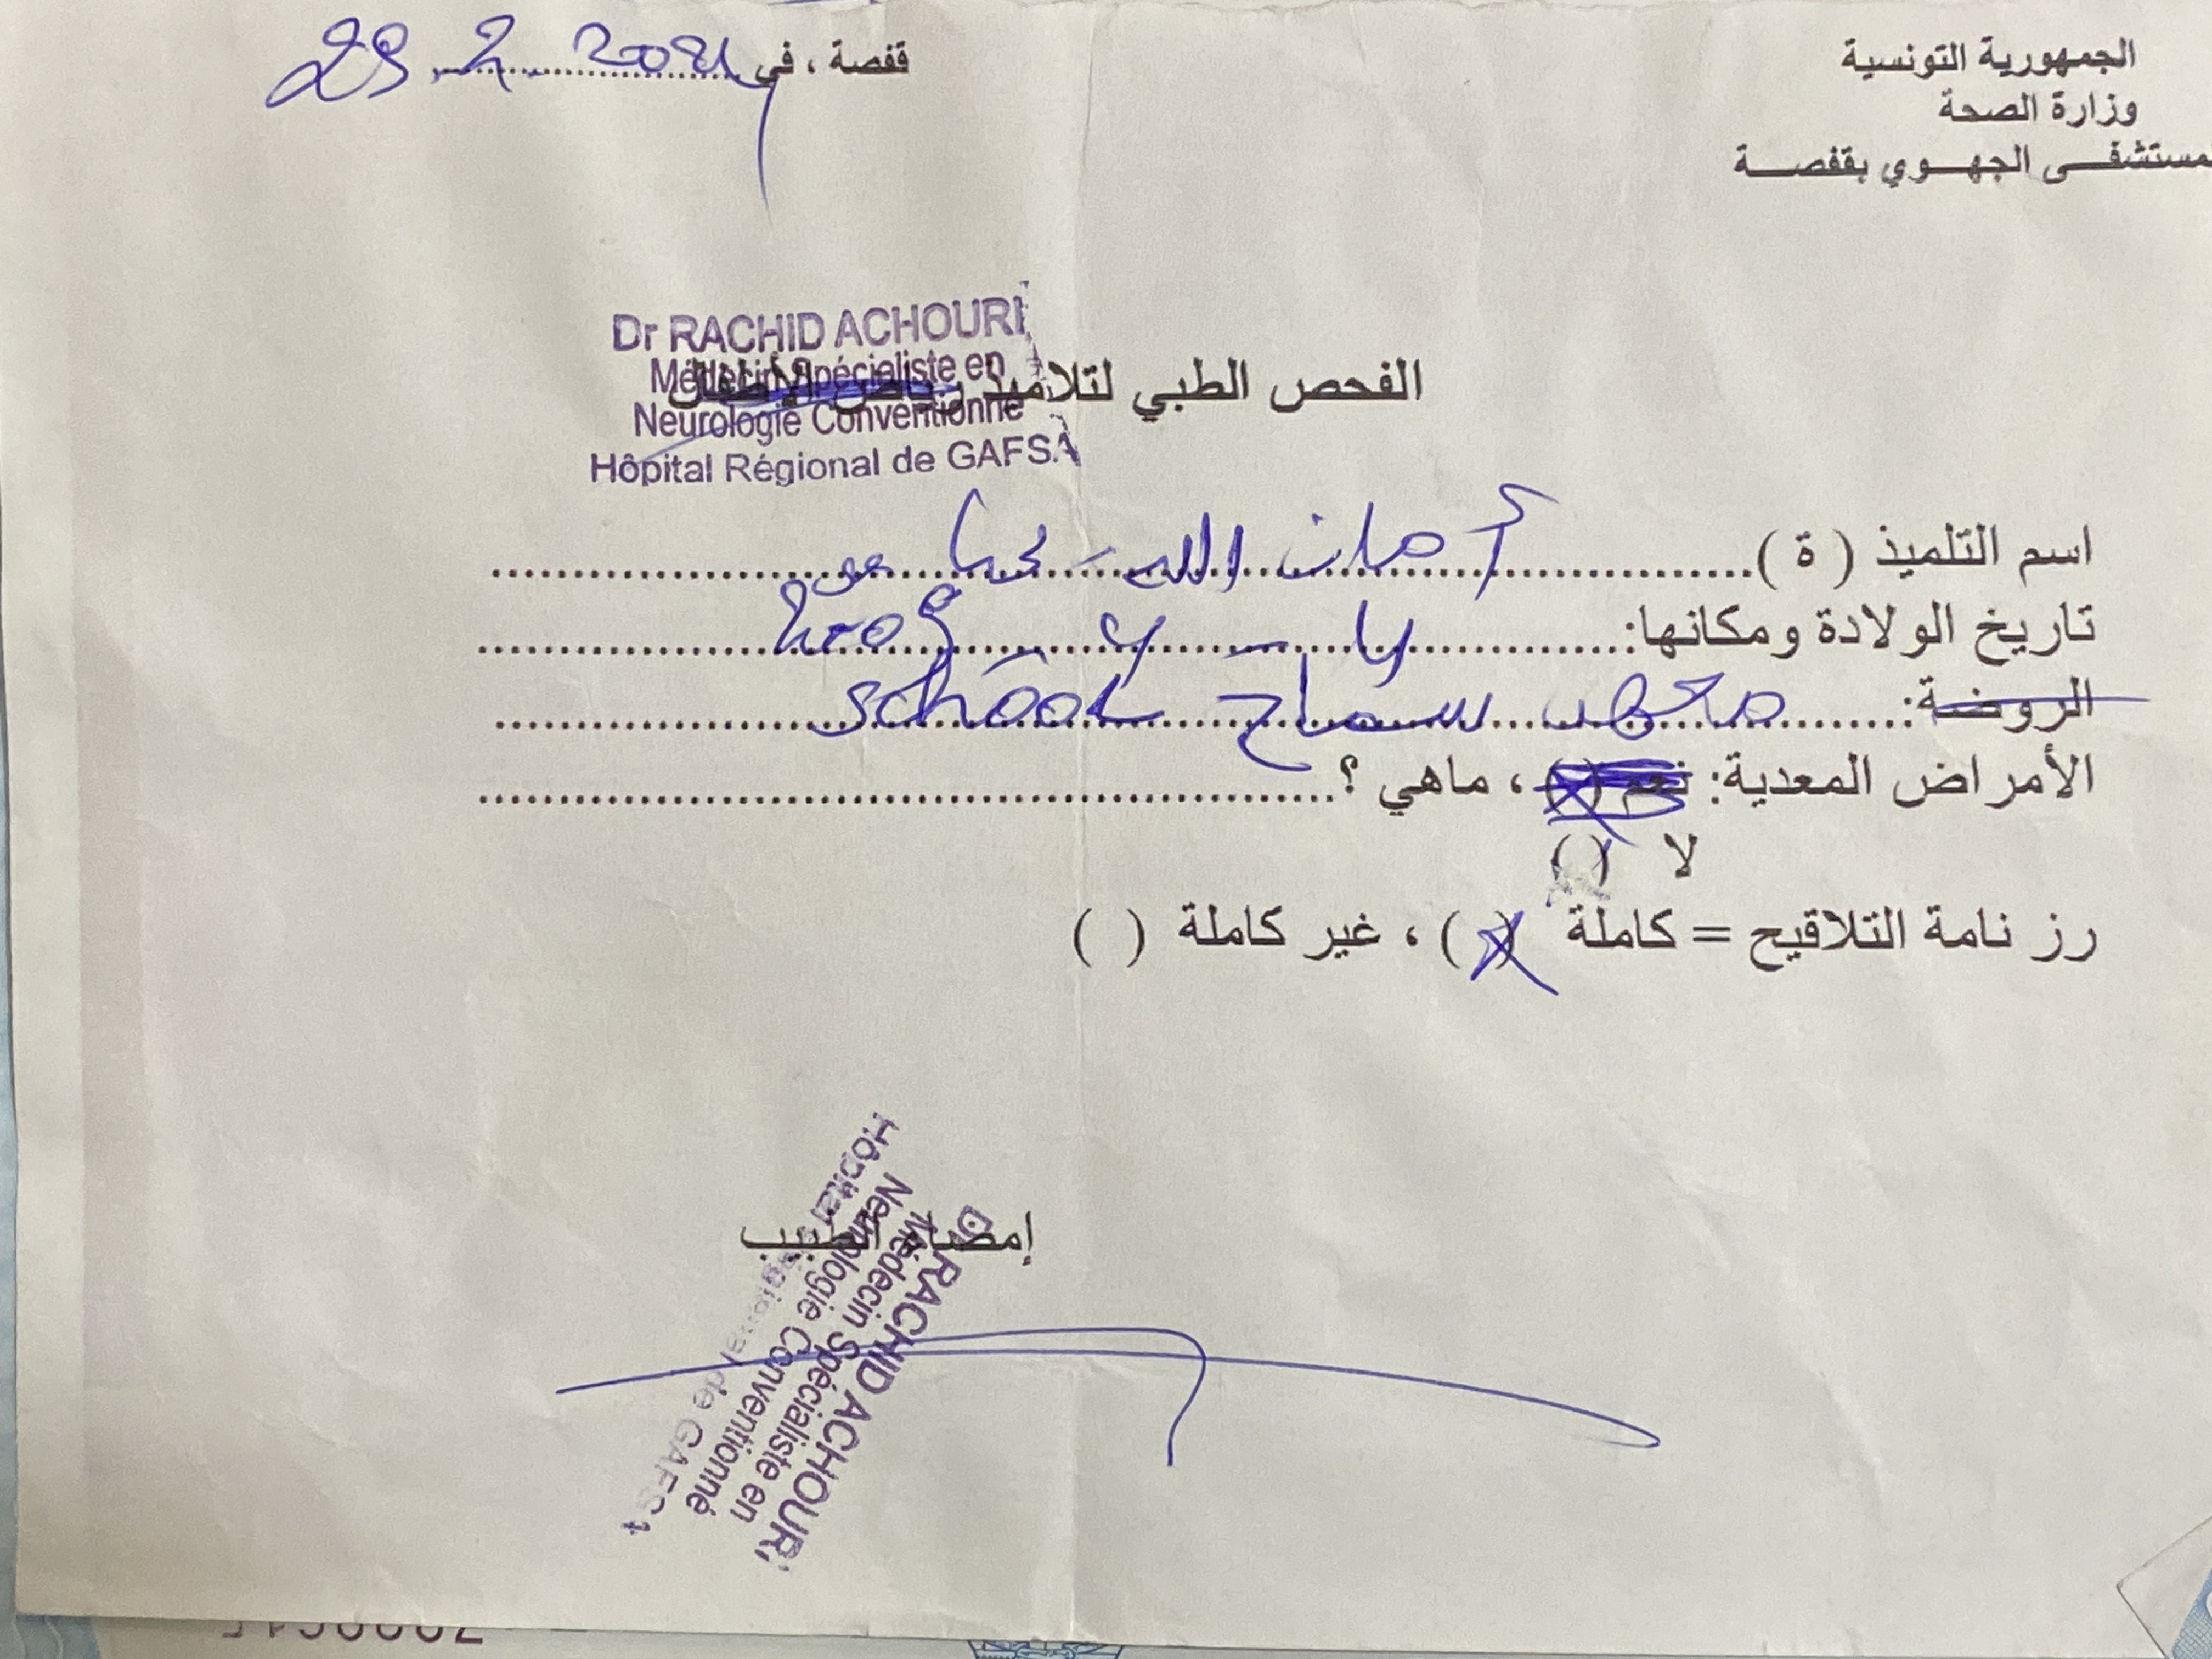 الجمهورية التونسية
وزارة الصحة
لمستشفى الجهوي بقفصة
قفصة ، في 29.2.2024
Dr RACHID ACHOURI
Médecin Spécialiste en
Neurologie Conventionné
Hôpital Régional de GAFSA
الفحص الطبي لتلاميذ رياض الأطفال
اسم التلميذ ( ة ) أمان الله
تاريخ الولادة ومكانها:
الروضة: معهد سماح school
الأمراض المعدية: نعم ( ) ، ماهي ؟
لا ( )
رزنامة التلاقيح = كاملة (x) ، غير كاملة ( )
إمضاء الطبيب
Dr RACHID ACHOURI
Médecin Spécialiste en
Neurologie Conventionné
Hôpital Régional de GAFSA